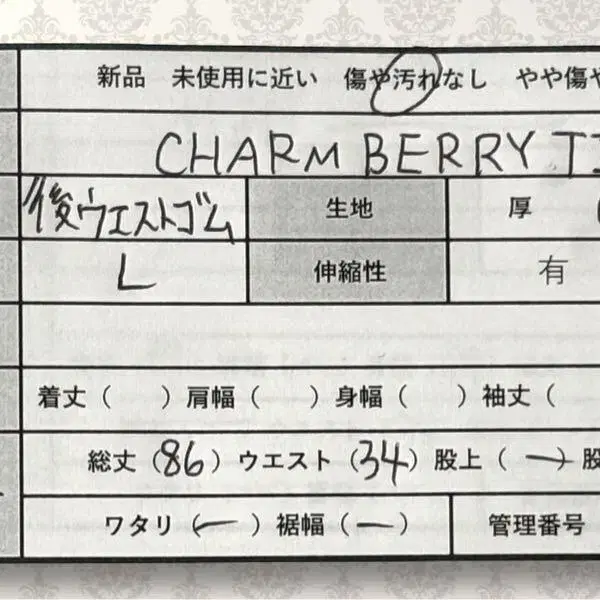 新品 未使用に近い 傷や汚れなし やや傷や
CHARM BERRY TI
後ウエストゴム 生地 厚
L 伸縮性 有
着丈（　）肩幅（　）身幅（　）袖丈（
総丈（86）ウエスト（34）股上（ー）股
ワタリ（ー）裾幅（ー） 管理番号